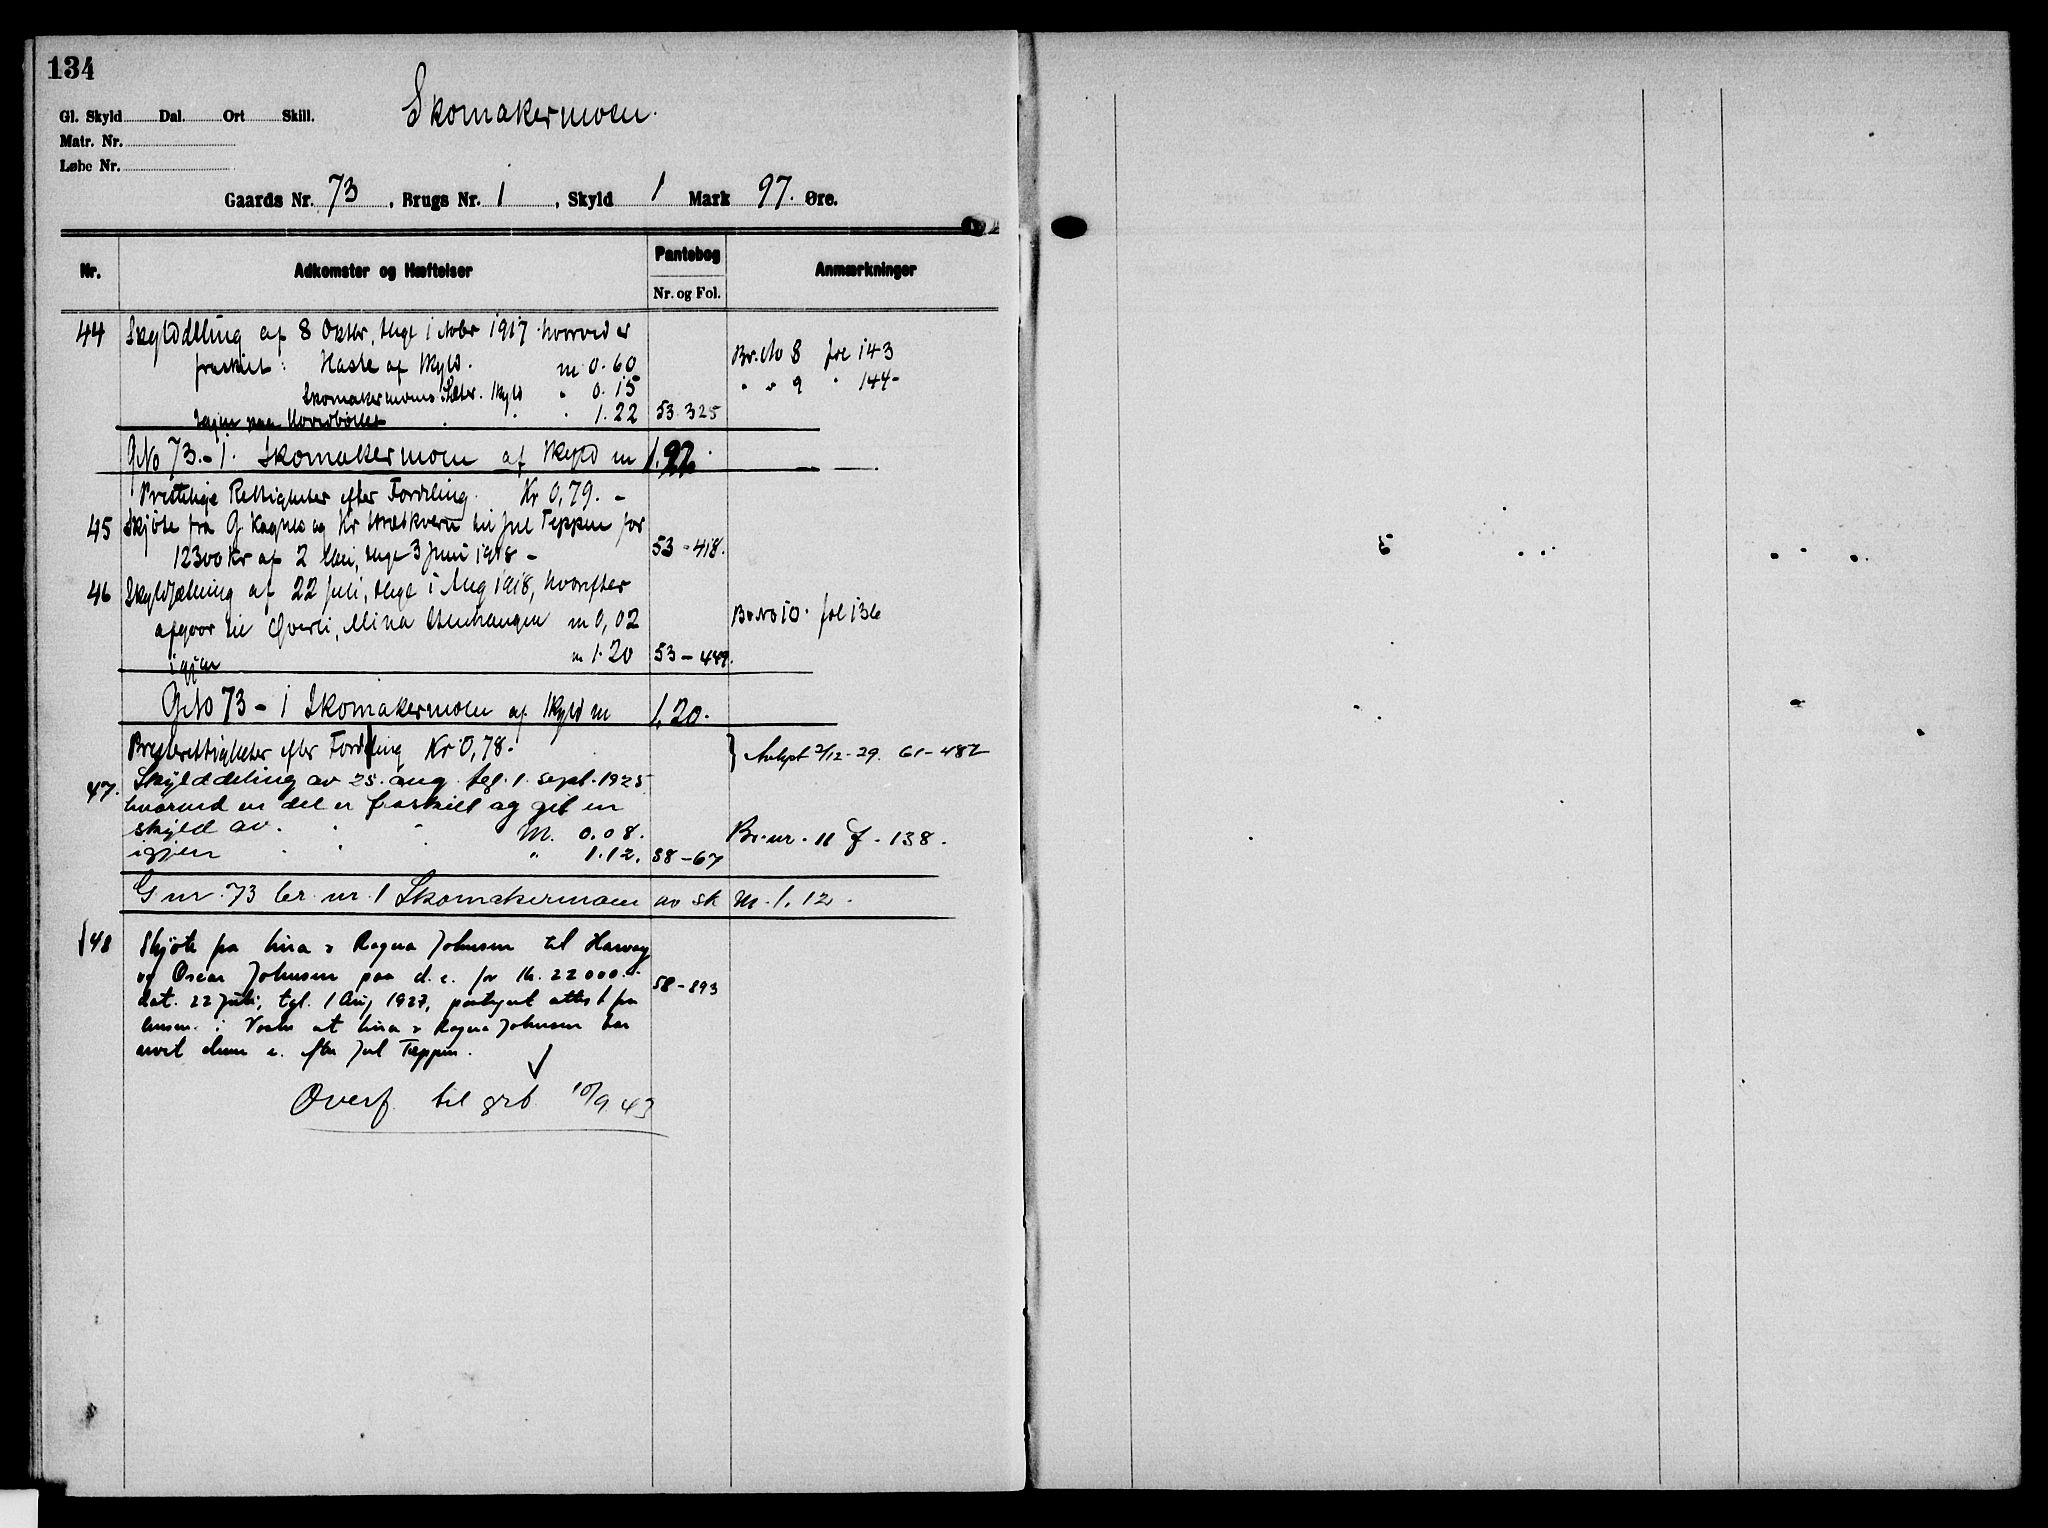 134
Skomakermoen.
Gl. Skyld Dal. Ort Skill.
Matr. Nr.
Løbe Nr.
Gaards Nr. 73, Brugs Nr. 1, Skyld 1 Mark 97. Øre.
Nr. Adkomster og Hæftelser Pantebog Anmærkninger
Nr. og Fol.
44 Skylddeling af 8 Oktbr, thgl 1 Novbr 1917 hvorved er
fraskilt: af Skyld. m 0.60 Br. No 8 fol 143
Skomakermoens Sæter. Skyld " 0.15 " " 9 " 144-
Igjen paa Hovedbølet " 1.22 53.325
GNo 73.-1. Skomakermoen af Skyld m
Prestelige Rettigheter efter Fordeling. Kr 0,79.-
45 Skjøte fra G og Kr til Jul Teppen for
12300 Kr af 2 Mai, thgl 3 Juni 1918 - 53-418.
46 Skyldfælning af 22 Juli, thgl 1 Aug 1918, hvorefter
afgaar til Øverli, Mina m 0,02 Br No 10. fol 136
igjen m 1.20 53-489.
GNo 73-1 Skomakermoen af Skyld m 1.20.
Presterettigheter efter Fordeling Kr 0,78. } Avløst 2/12-29. 61-482
47. Skylddeling av 25. aug. tgl. 1. sept. 1925
hvorved en del er fraskilt og git en
skyld av. M. 0.08. Br. nr. 11 f. 138.
igjen " 1.12. 58-67
G nr. 73 br. nr. 1 Skomakermoen av sk M. 1.12.
48 Skjøte fra Lina & Ragna Johnsen til Harvey
og Oscar Johnsen paa d. e. for Kr. 22000.-
dat. 22 Juli, tgl. 1 Aug 1927, attest fra
i at Lina & Ragna Johnsen har
arvet denne e. efter Jul Teppen.
Overf. til grb. 10/9 43